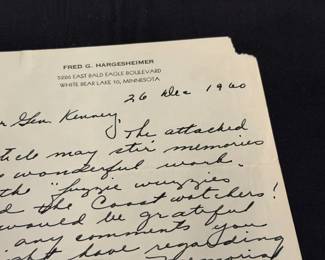 FRED G. HARGESHEIMER
5286 EAST BALD EAGLE BOULEVARD
WHITE BEAR LAKE 10, MINNESOTA
26 Dec 1960
r Gen. Kenney,
The attached
ticle may stir memories
e wonderful work
the "fuzzie wuzzies
d the Coast watchers!
would be grateful
any comments you
ight have regarding
Memorial